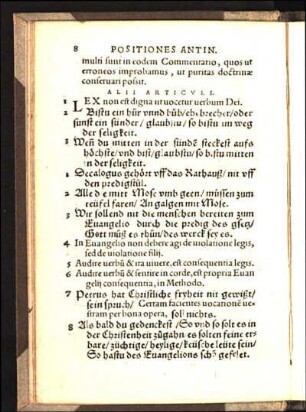 8 POSITIONES ANTIN.
multi sunt in eodem Commentario, quos ut
erroneos improbamus, ut puritas doctrinæ
conseruari possit.
ALII ARTICVLI.
1 LEX non est digna ut uocetur uerbum Dei.
2 Bistu ein hůr vnnd bůb/ ehebrecher/ oder
sunst ein sünder/ glaubstu/ so bistu im weg
der seligkeit.
3 Wen̄ du mitten in der sünde steckest auffs
höchste/ vnd bist/ glaubstu/ so bistu mitten
in der seligkeit.
1 Decalogus gehört vff das Rathauß/ nit vff
den predigstůl.
2 Alle die mit Mose vmb geen/ müssen zum
teüfel faren/ An galgen mit Mose.
3 Wir sollend nit die menschen bereiten zum
Euangelio durch die predig des gsetz/
Gott můß es thůn/ des werck sey es.
4 In Euangelio non debere agi de uiolatione legis,
sed de uiolatione filij.
5 Audire uerbū & ita uiuere, est consequentia legis.
6 Audire uerbū & sentire in corde, est propria Euan
gelij consequentia, in Methodo.
7 Petrus hat Christliche fryheit nit gewißt/
sein spruch/ Certam facientes uocationē ue-
stram per bona opera, soll nichts.
8 Als bald du gedenckest/ So vnd so solt es in
der Christenheit zůgahn es solten feine er-
bare/ züchtige/ heylige/ keüsche leüte sein/
So hastu des Euangelions schō gefelet.